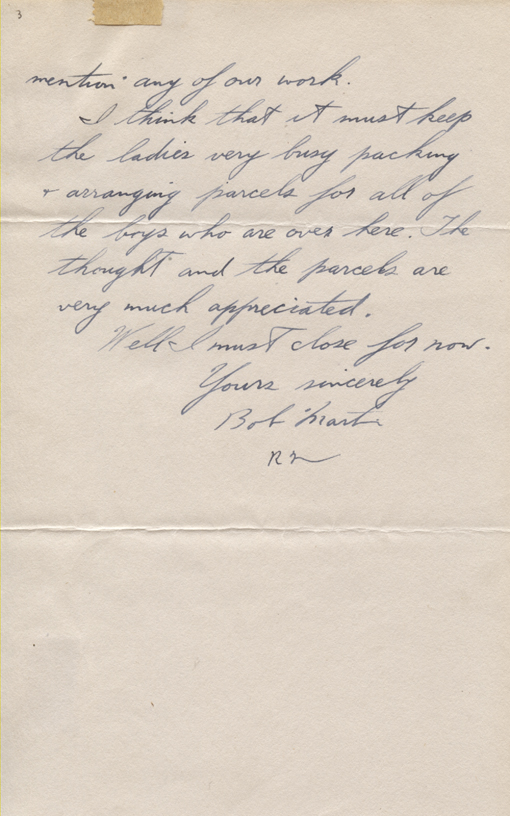 3
mention any of our work.
I think that it must keep
the ladies very busy packing
+ arranging parcels for all of
the boys who are over here. The
thought and the parcels are
very much appreciated.
Well I must close for now.
Yours sincerely
Bob